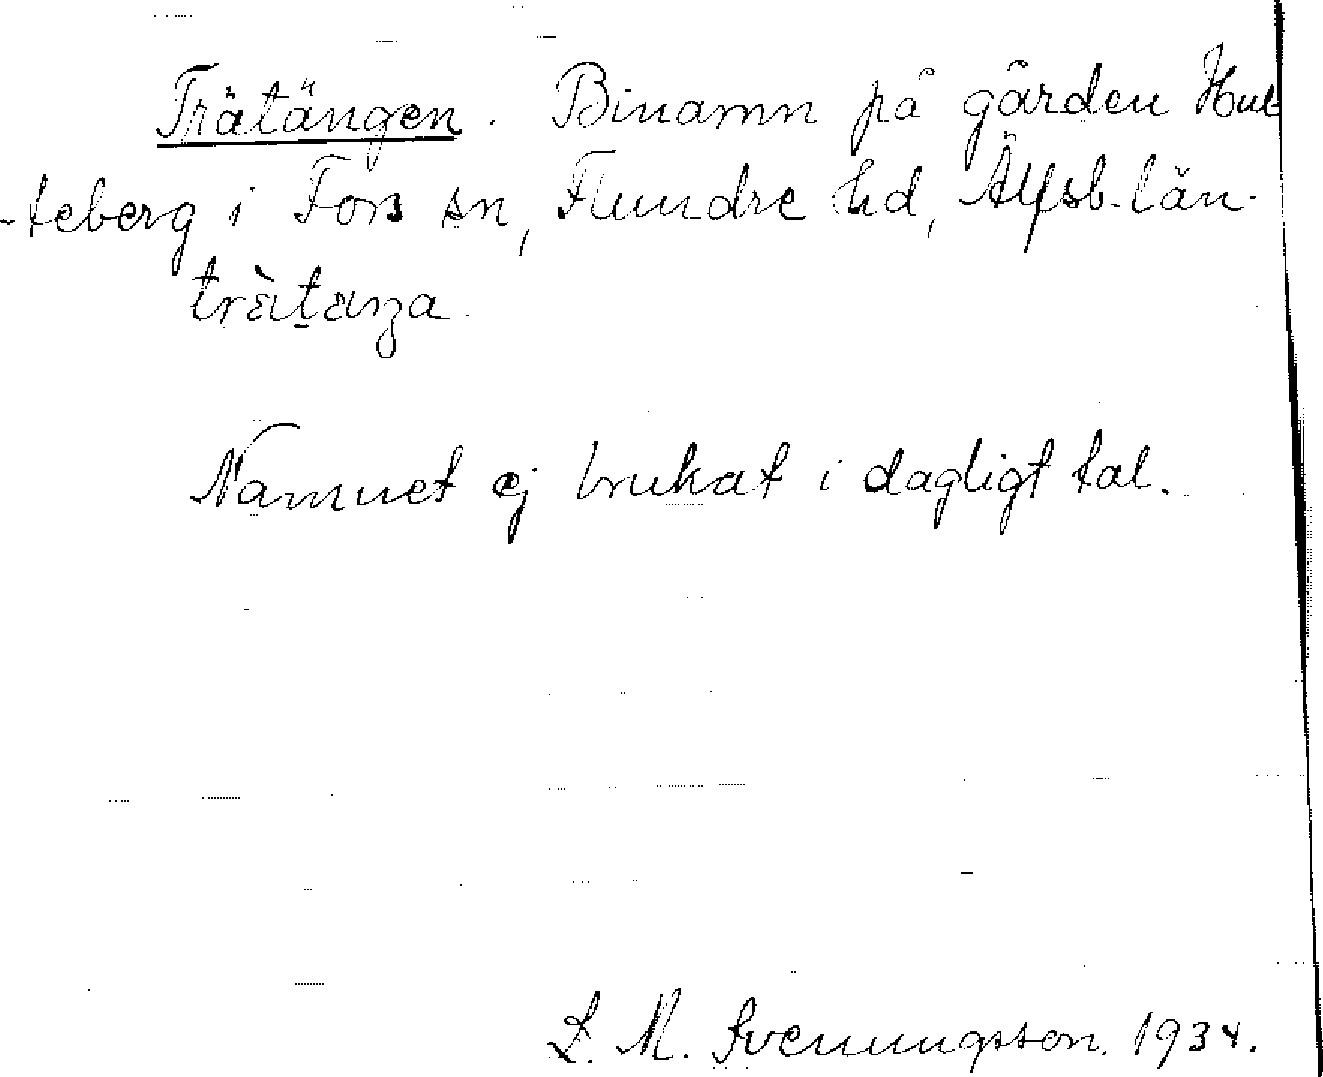 Trätängen. Binamn på gården Hul-
teberg i Fors sn, Flundre hd, Älfsb. län.
trätäŋa
Namnet ej brukat i dagligt tal.
L. M. Svenungsson. 1934.